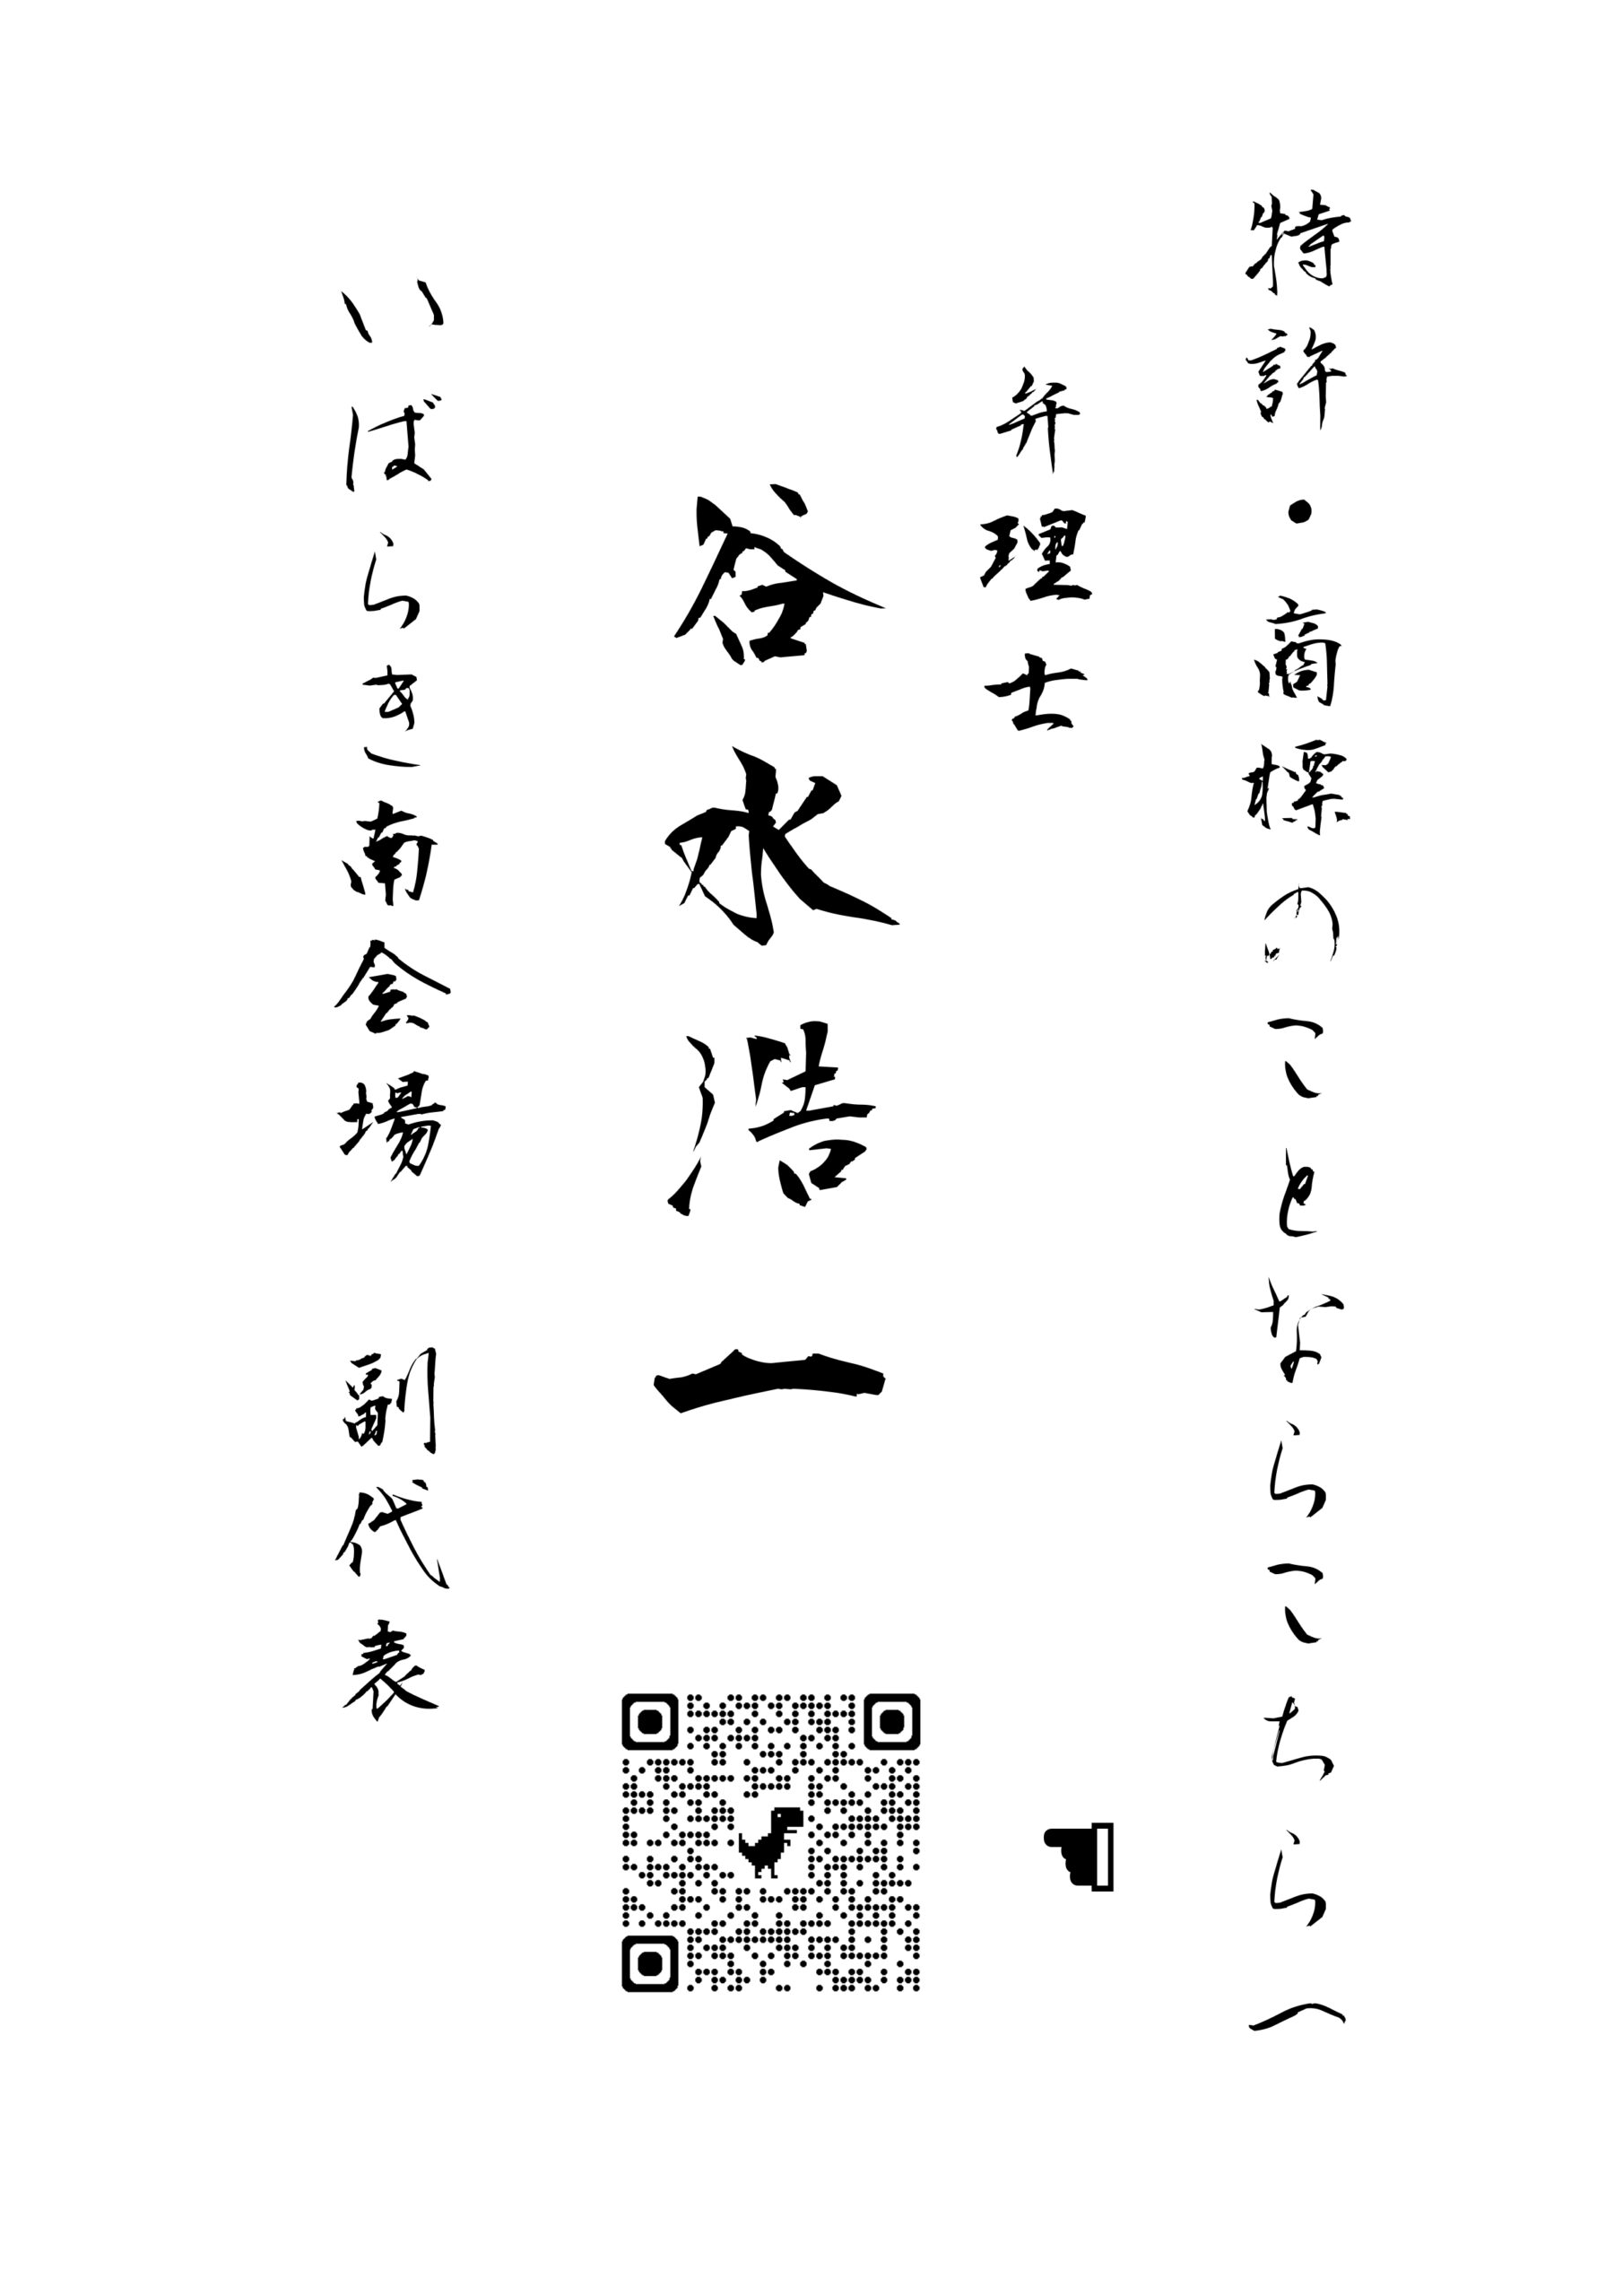 特許・商標のことならこちらへ
弁理士
谷水浩一
いばらき南会場　副代表